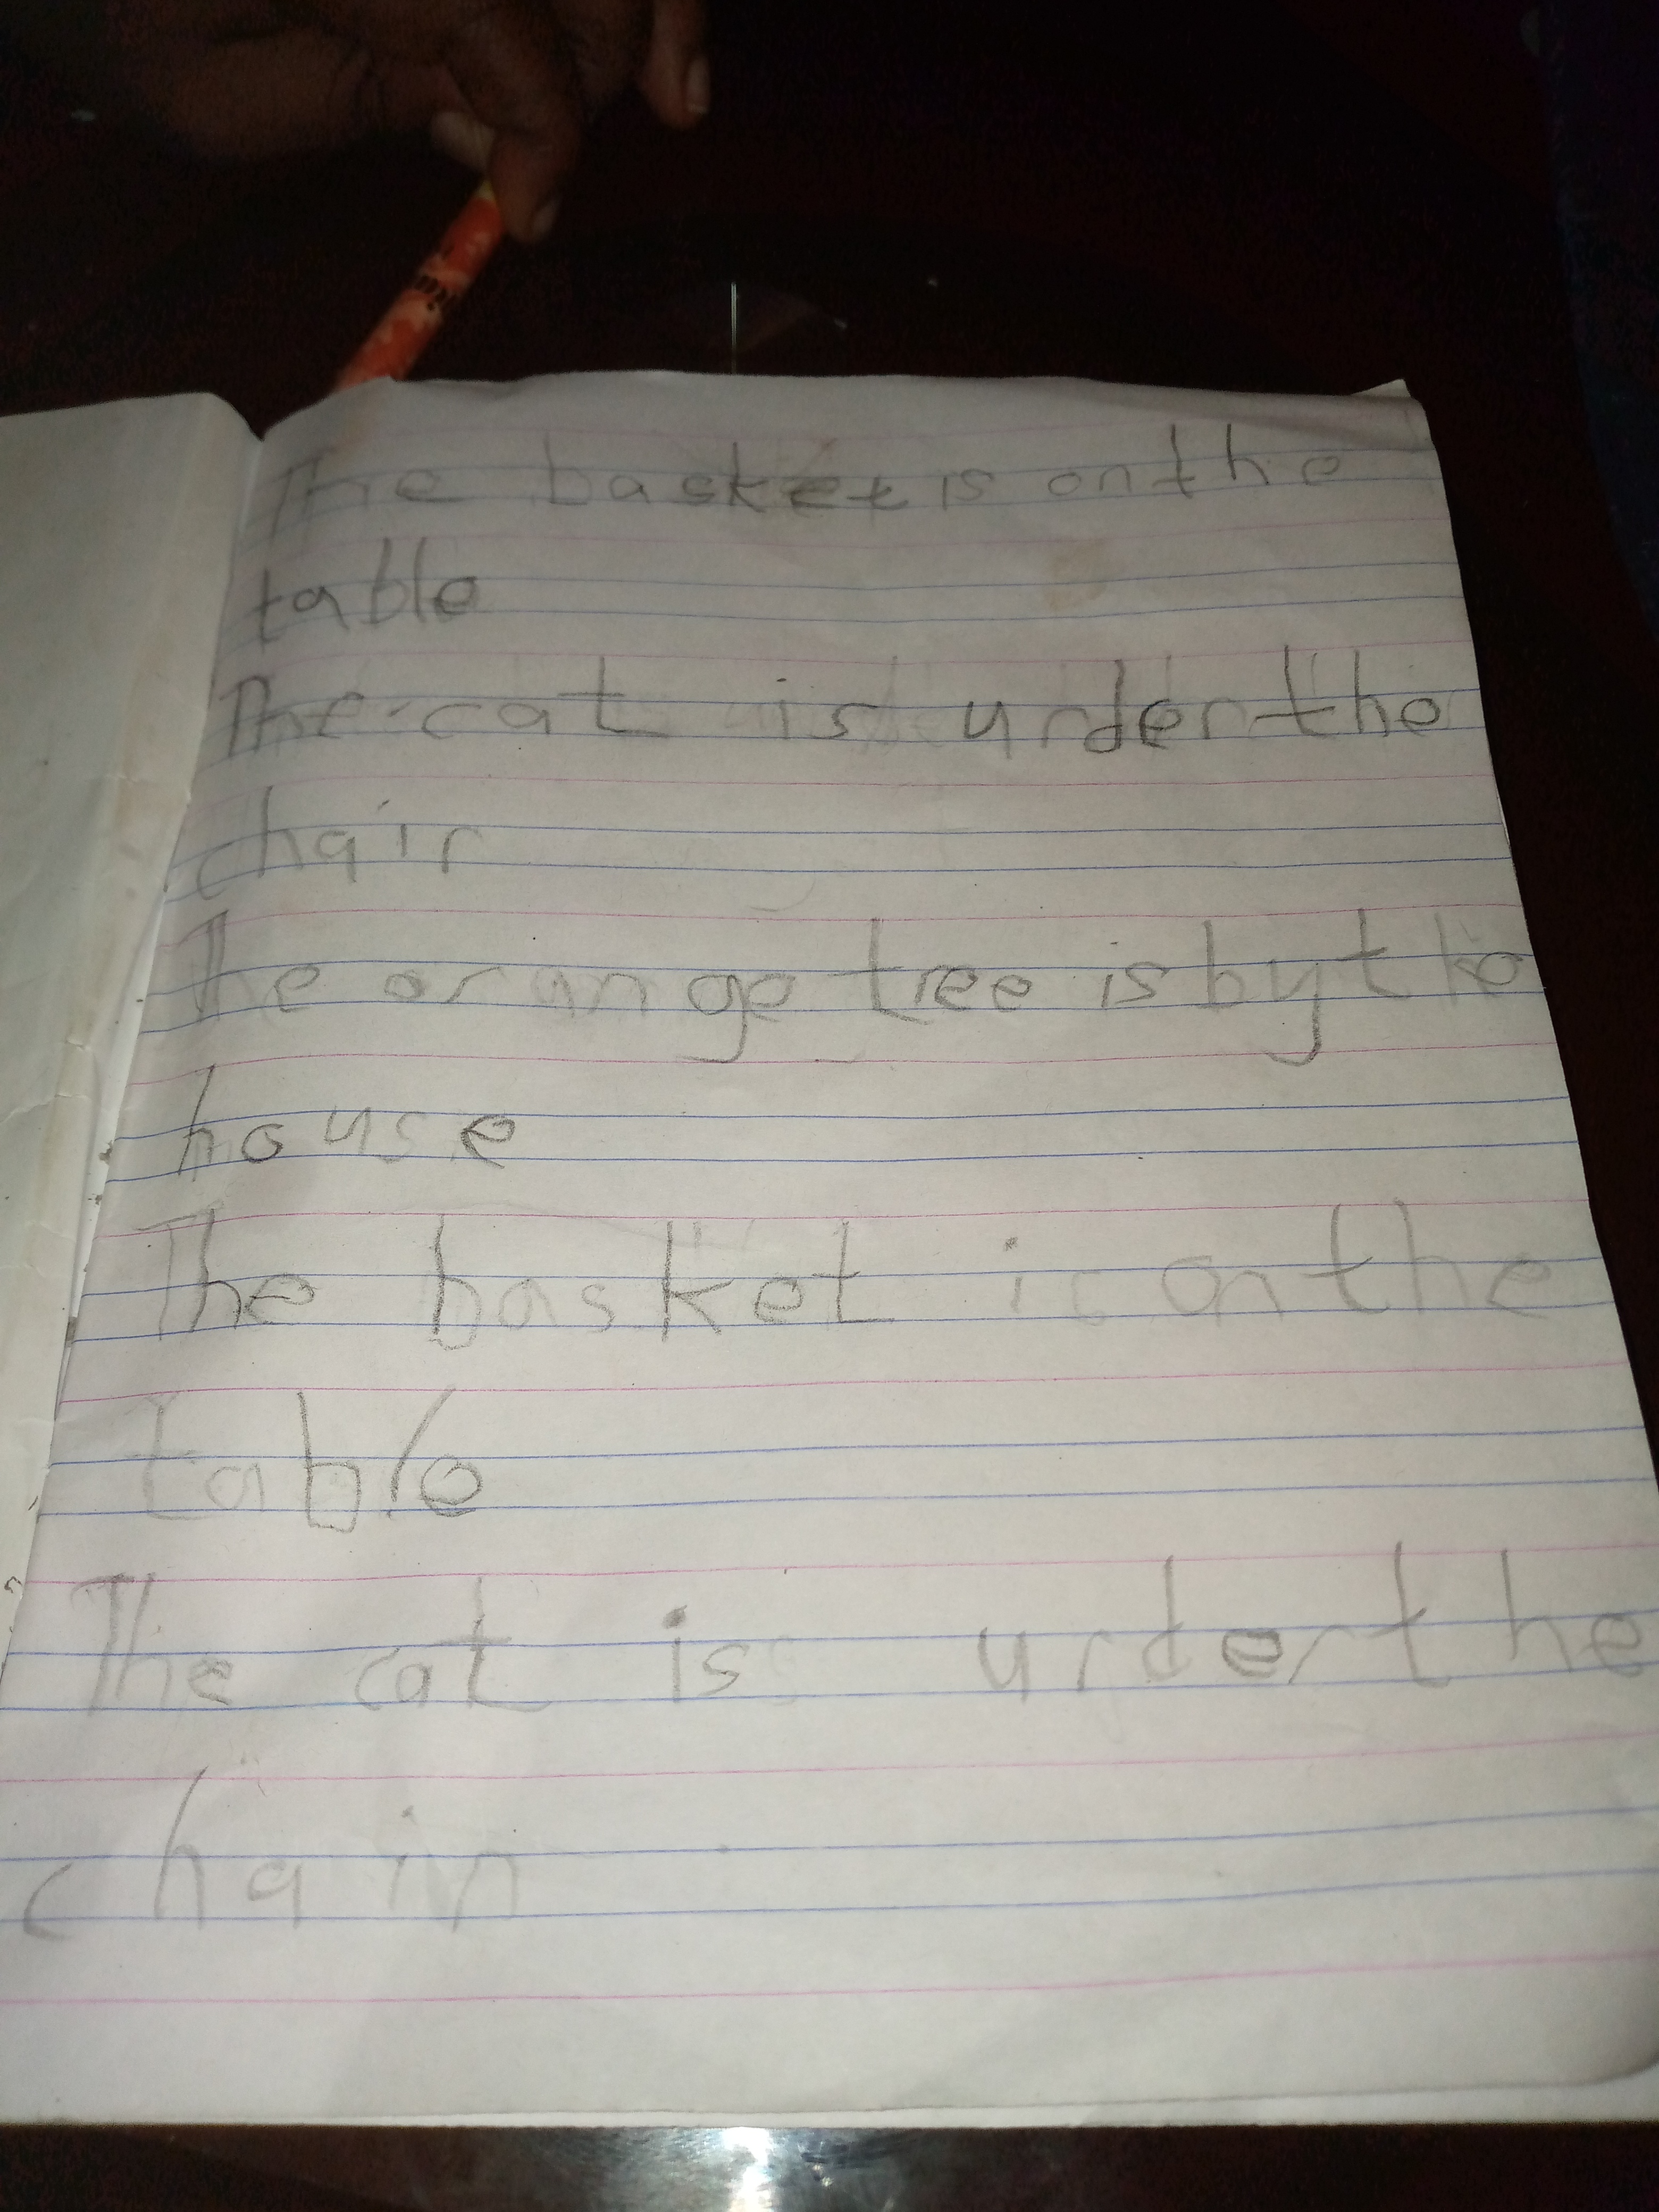 The basket is on the
table
The cat is urder the
chair
The orange tree is by the
house
The basket is on the
table
The cat is urder the
chain